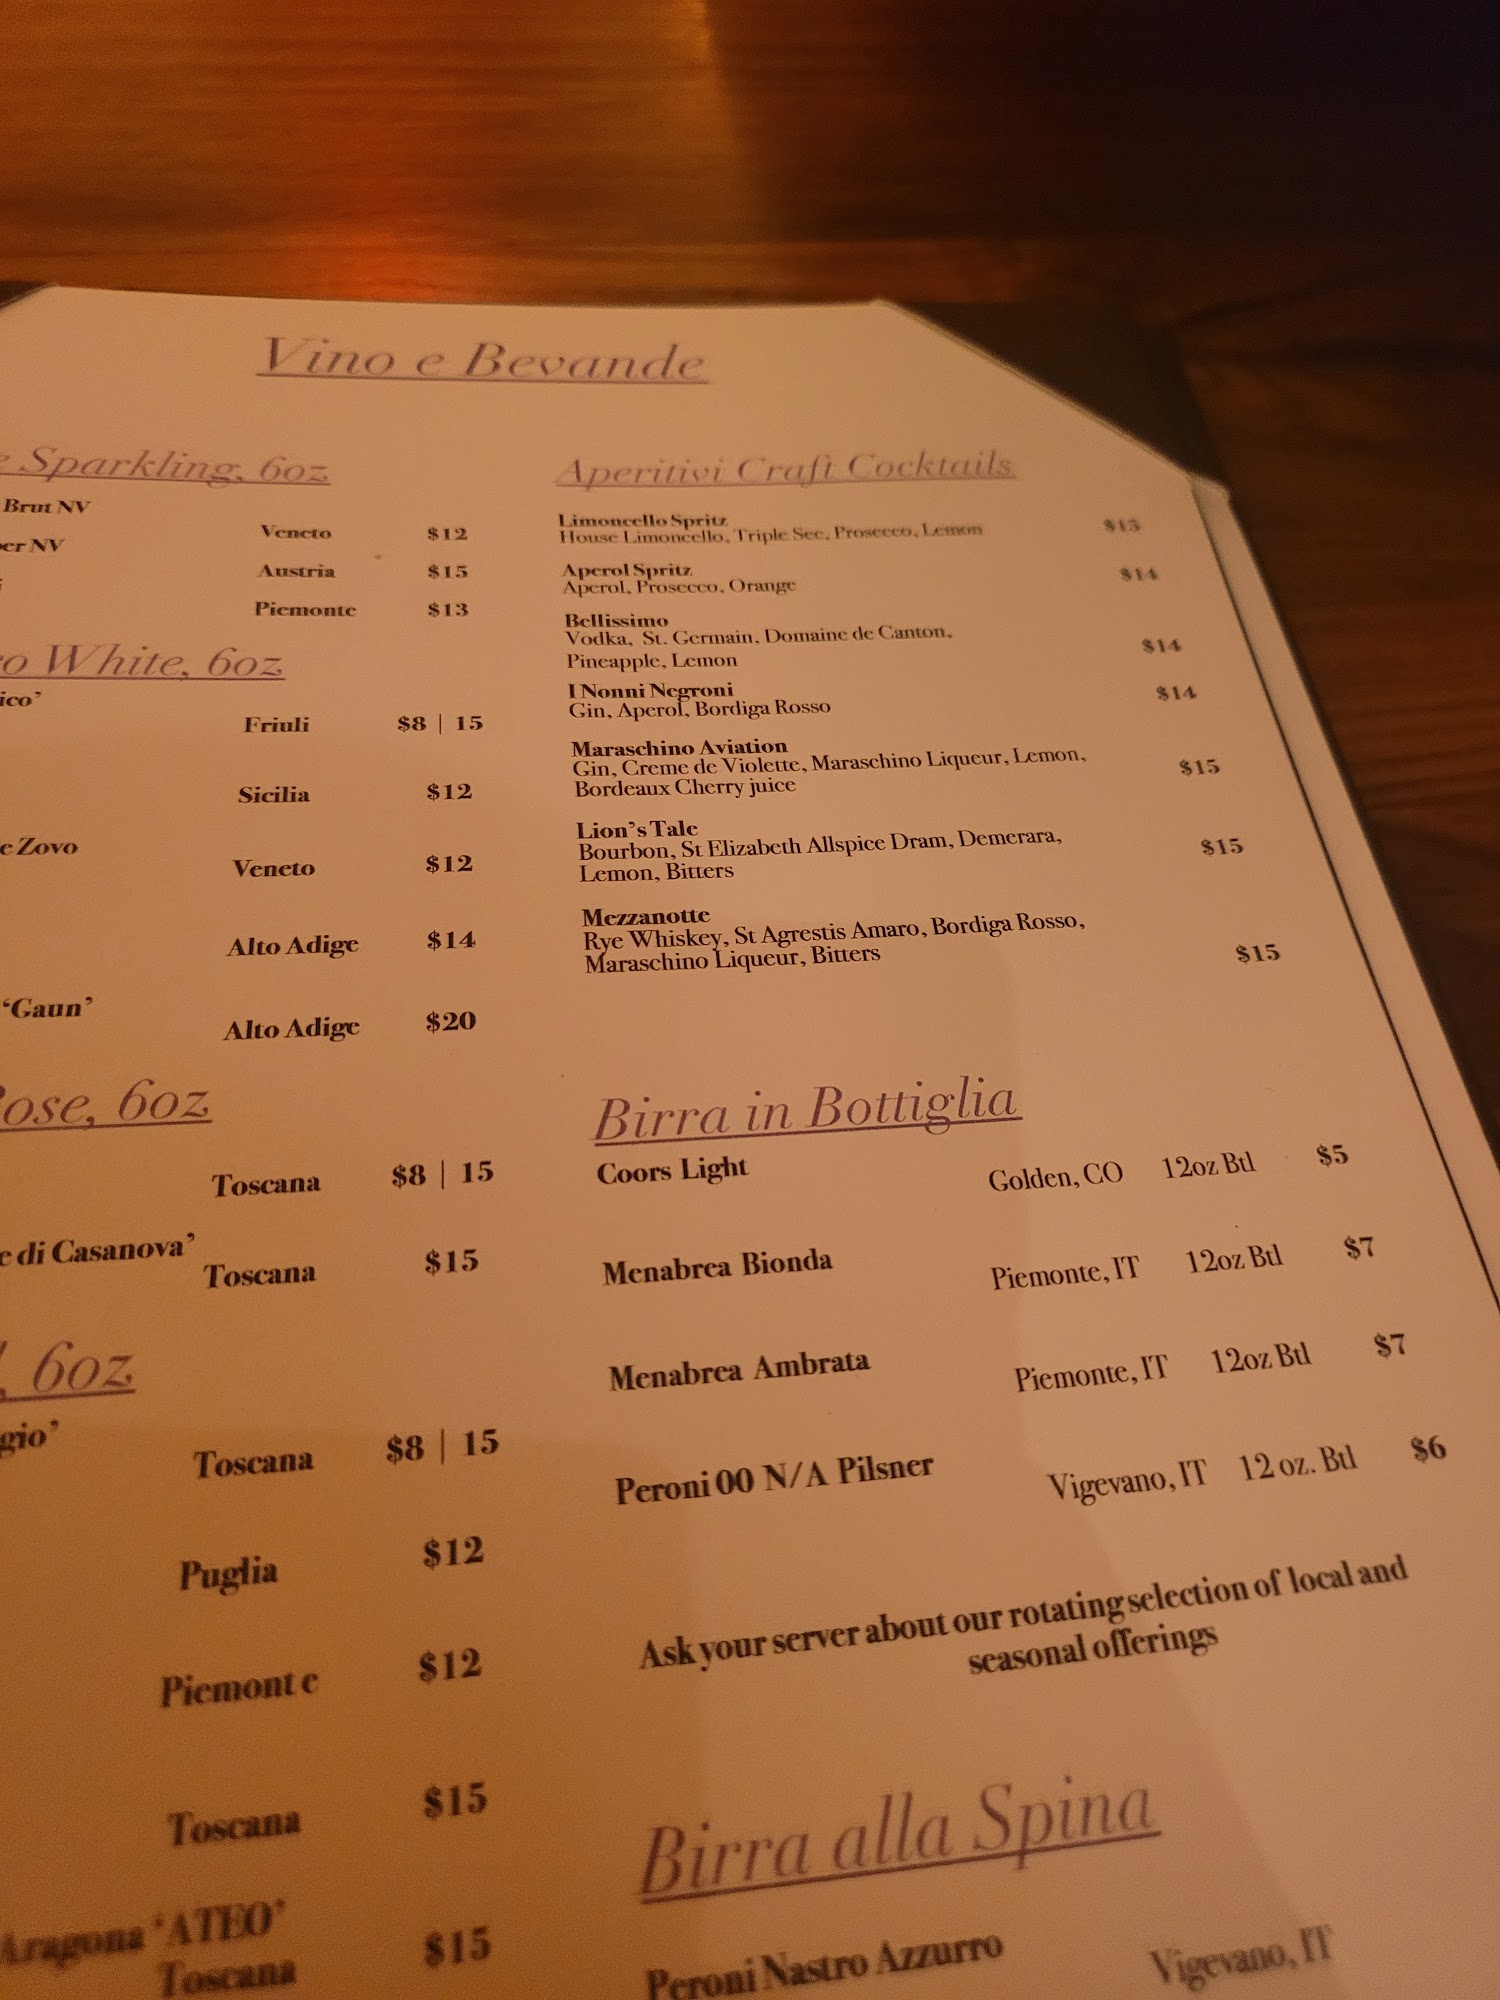 Vino e Bevande
Sparkling, 6oz
Brut NV
Veneto $12
NV
Austria $15
Piemonte $13
White, 6oz
Friuli $8 | 15
Sicilia $12
Zovo
Veneto $12
Alto Adige $14
‘Gaun’
Alto Adige $20
6oz
Toscana $8 | 15
di Casanova’
Toscana $15
6oz
Toscana $8 | 15
Puglia $12
Piemont e $12
Toscana $15
Aragona ‘ATEO’
Toscana $15
Aperitivi Craft Cocktails
Limoncello Spritz
House Limoncello, Triple Sec, Prosecco, Lemon $15
Aperol Spritz
Aperol, Prosecco, Orange $14
Bellissimo
Vodka, St. Germain, Domaine de Canton,
Pineapple, Lemon $14
I Nonni Negroni
Gin, Aperol, Bordiga Rosso $14
Maraschino Aviation
Gin, Creme de Violette, Maraschino Liqueur, Lemon,
Bordeaux Cherry juice $15
Lion’s Tale
Bourbon, St Elizabeth Allspice Dram, Demerara,
Lemon, Bitters $15
Mezzanotte
Rye Whiskey, St Agrestis Amaro, Bordiga Rosso,
Maraschino Liqueur, Bitters $15
Birra in Bottiglia
Coors Light Golden, CO 12oz Btl $5
Menabrea Bionda Piemonte, IT 12oz Btl $7
Menabrea Ambrata Piemonte, IT 12oz Btl $7
Peroni 00 N/A Pilsner Vigevano, IT 12 oz. Btl $6
Ask your server about our rotating selection of local and
seasonal offerings
Birra alla Spina
Peroni Nastro Azzurro Vigevano, IT